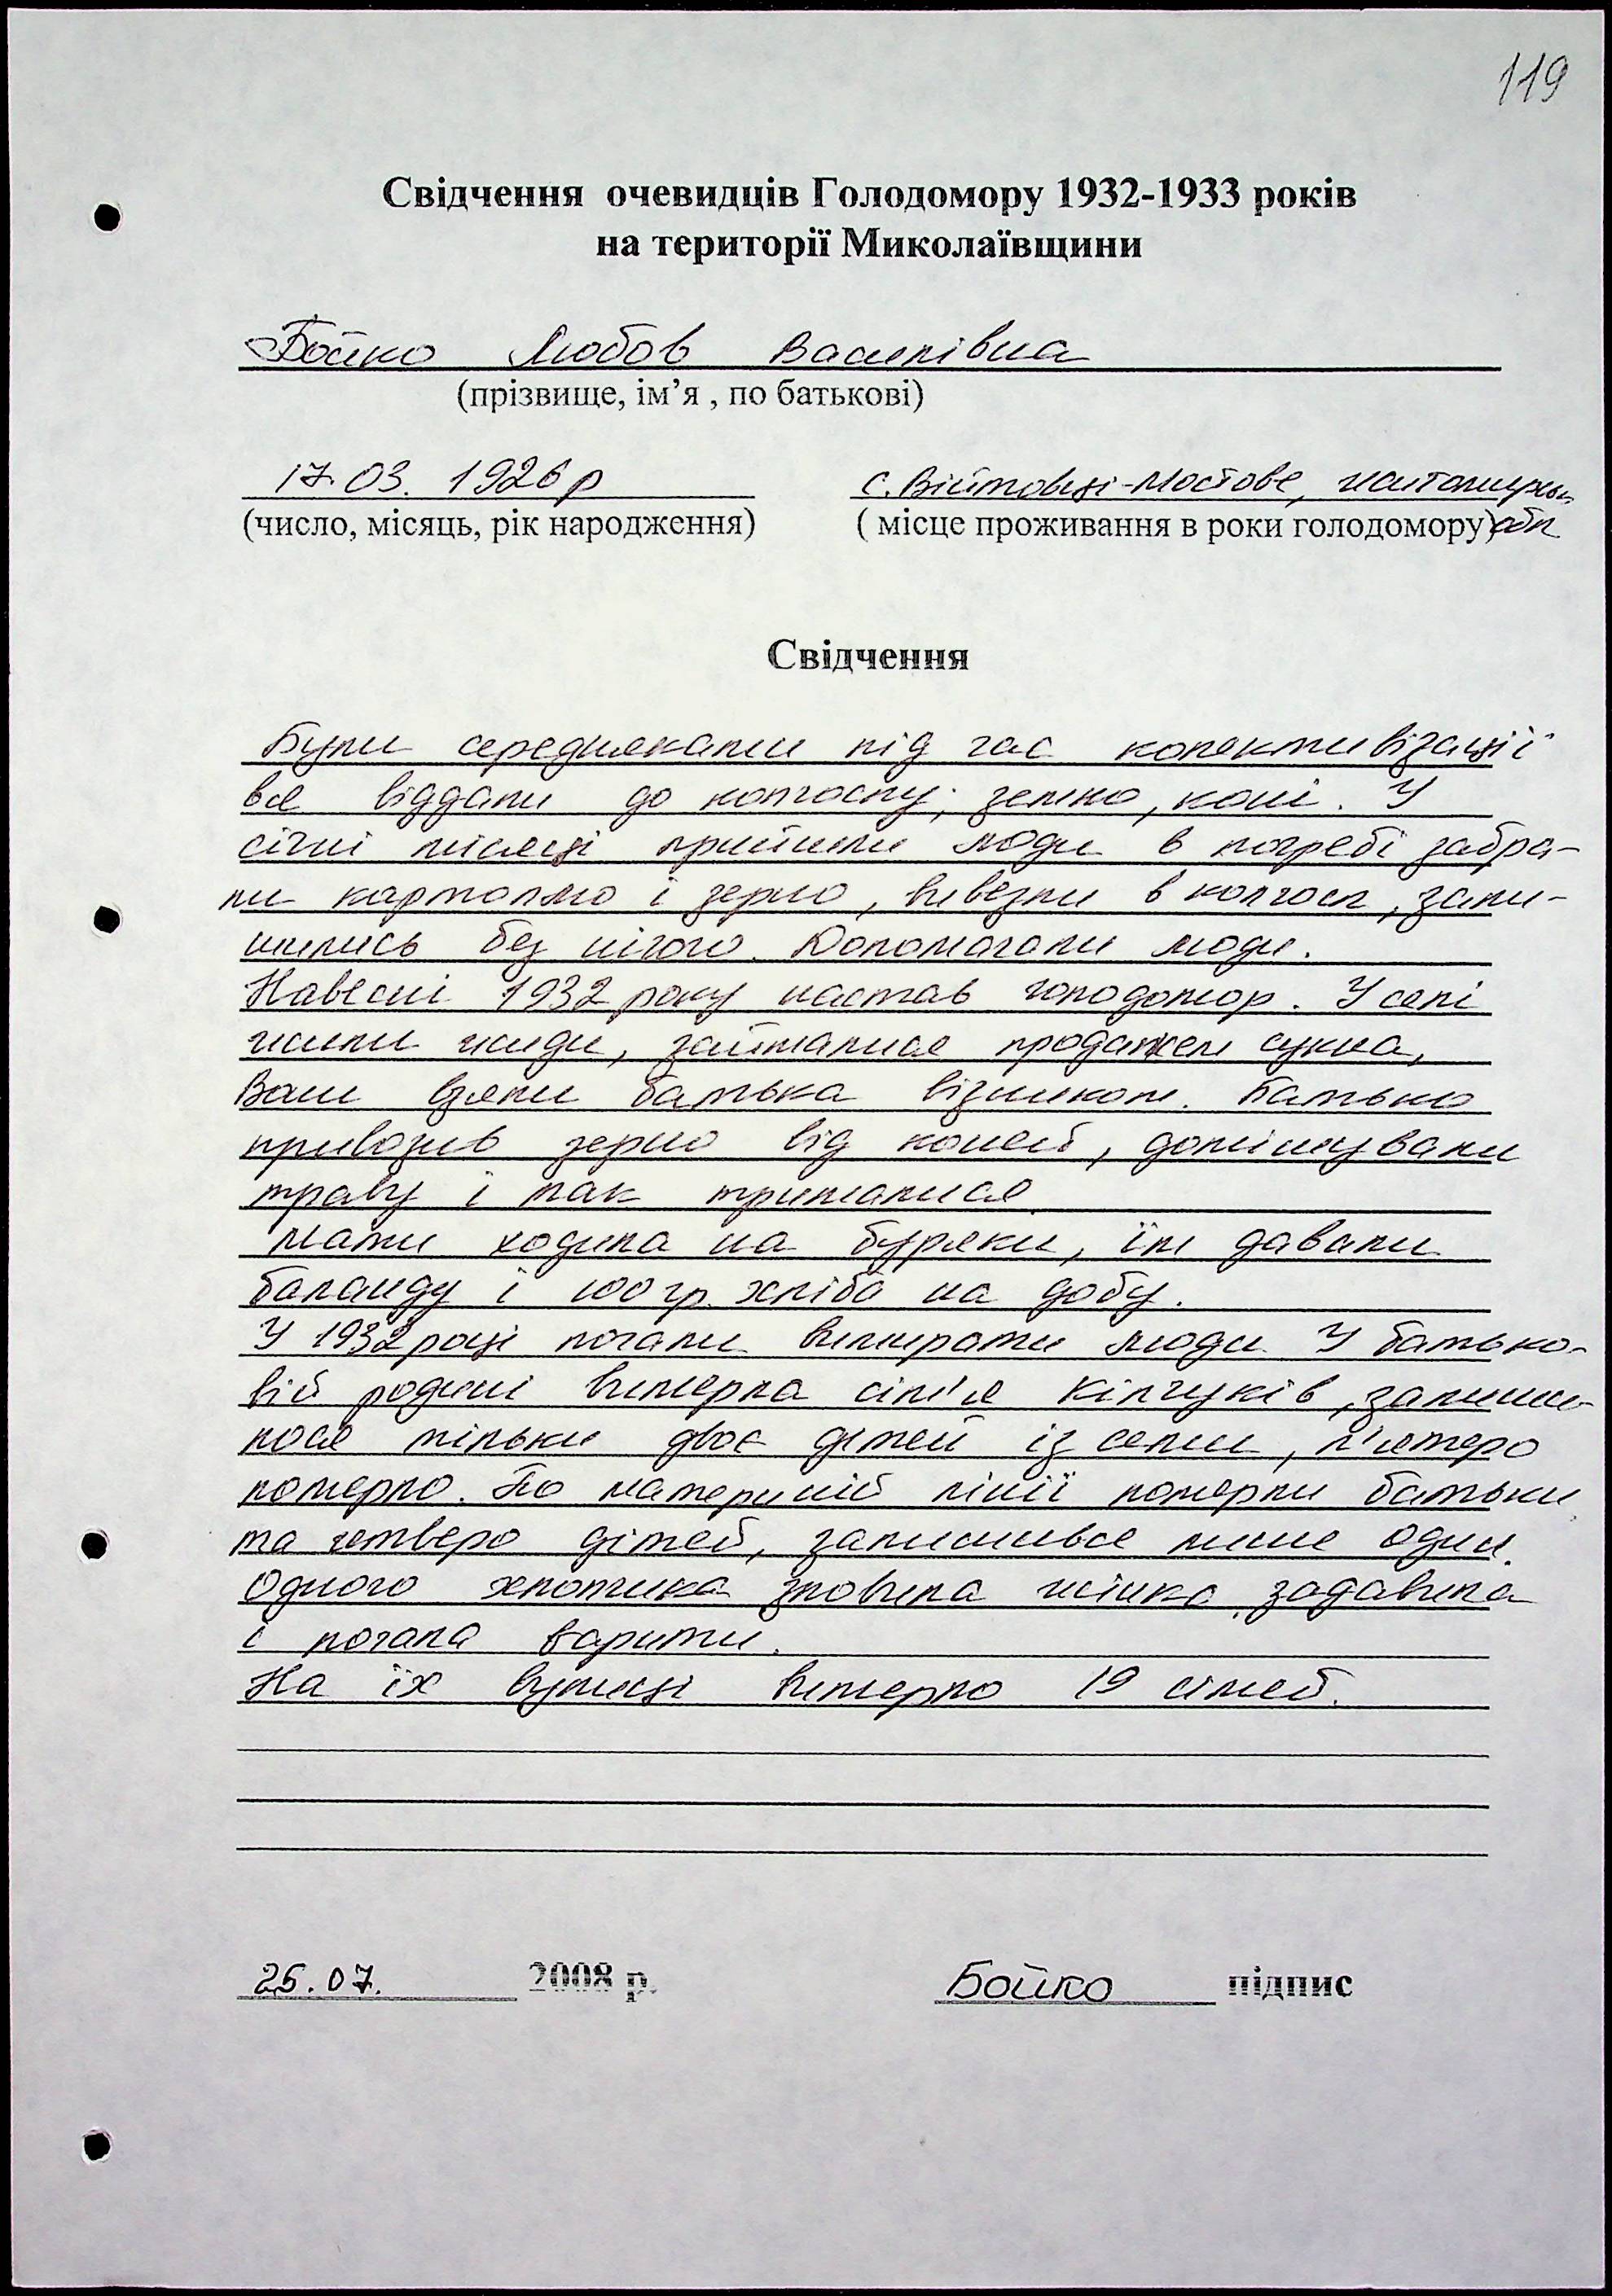 119
Свідчення очевидців Голодомору 1932-1933 років
на території Миколаївщини
Бойко Любов Василівна
(прізвище, ім’я , по батькові)
17.03. 1926 р
с. Війтовці-Мостове, Житомирсь.
(число, місяць, рік народження)
( місце проживання в роки голодомору) обл
Свідчення
Були середняками під час колективізації
все віддали до колгоспу; землю, коні. У
січні місяці прийшли люди в погребі забра-
ли картоплю і зерно, вивезли в колгосп, зали-
шились без нічого. Допомагали люди.
Навесні 1932 року настав голодомор. У селі
жили жиди, займалися продажем сукна,
Вони взяли батька візником. Батько
привозив зерно від коней, домішували
траву і так трималися
Мати ходила на буряки, їм давали
баланду і 100 гр. хліба на добу.
У 1932 році почали вимирати люди У батько-
вій родині вимерла сім'я Кілчуків, залиши-
лося тільки двоє дітей із семи, п'ятеро
померло. По материній лінії померли батьки
та четверо дітей, залишився лише один.
Одного хлопчика зловила жінка, задавила
і почала варити.
На їх вулиці вимерло 19 сімей.
25.07. 2008 р. Бойко підпис